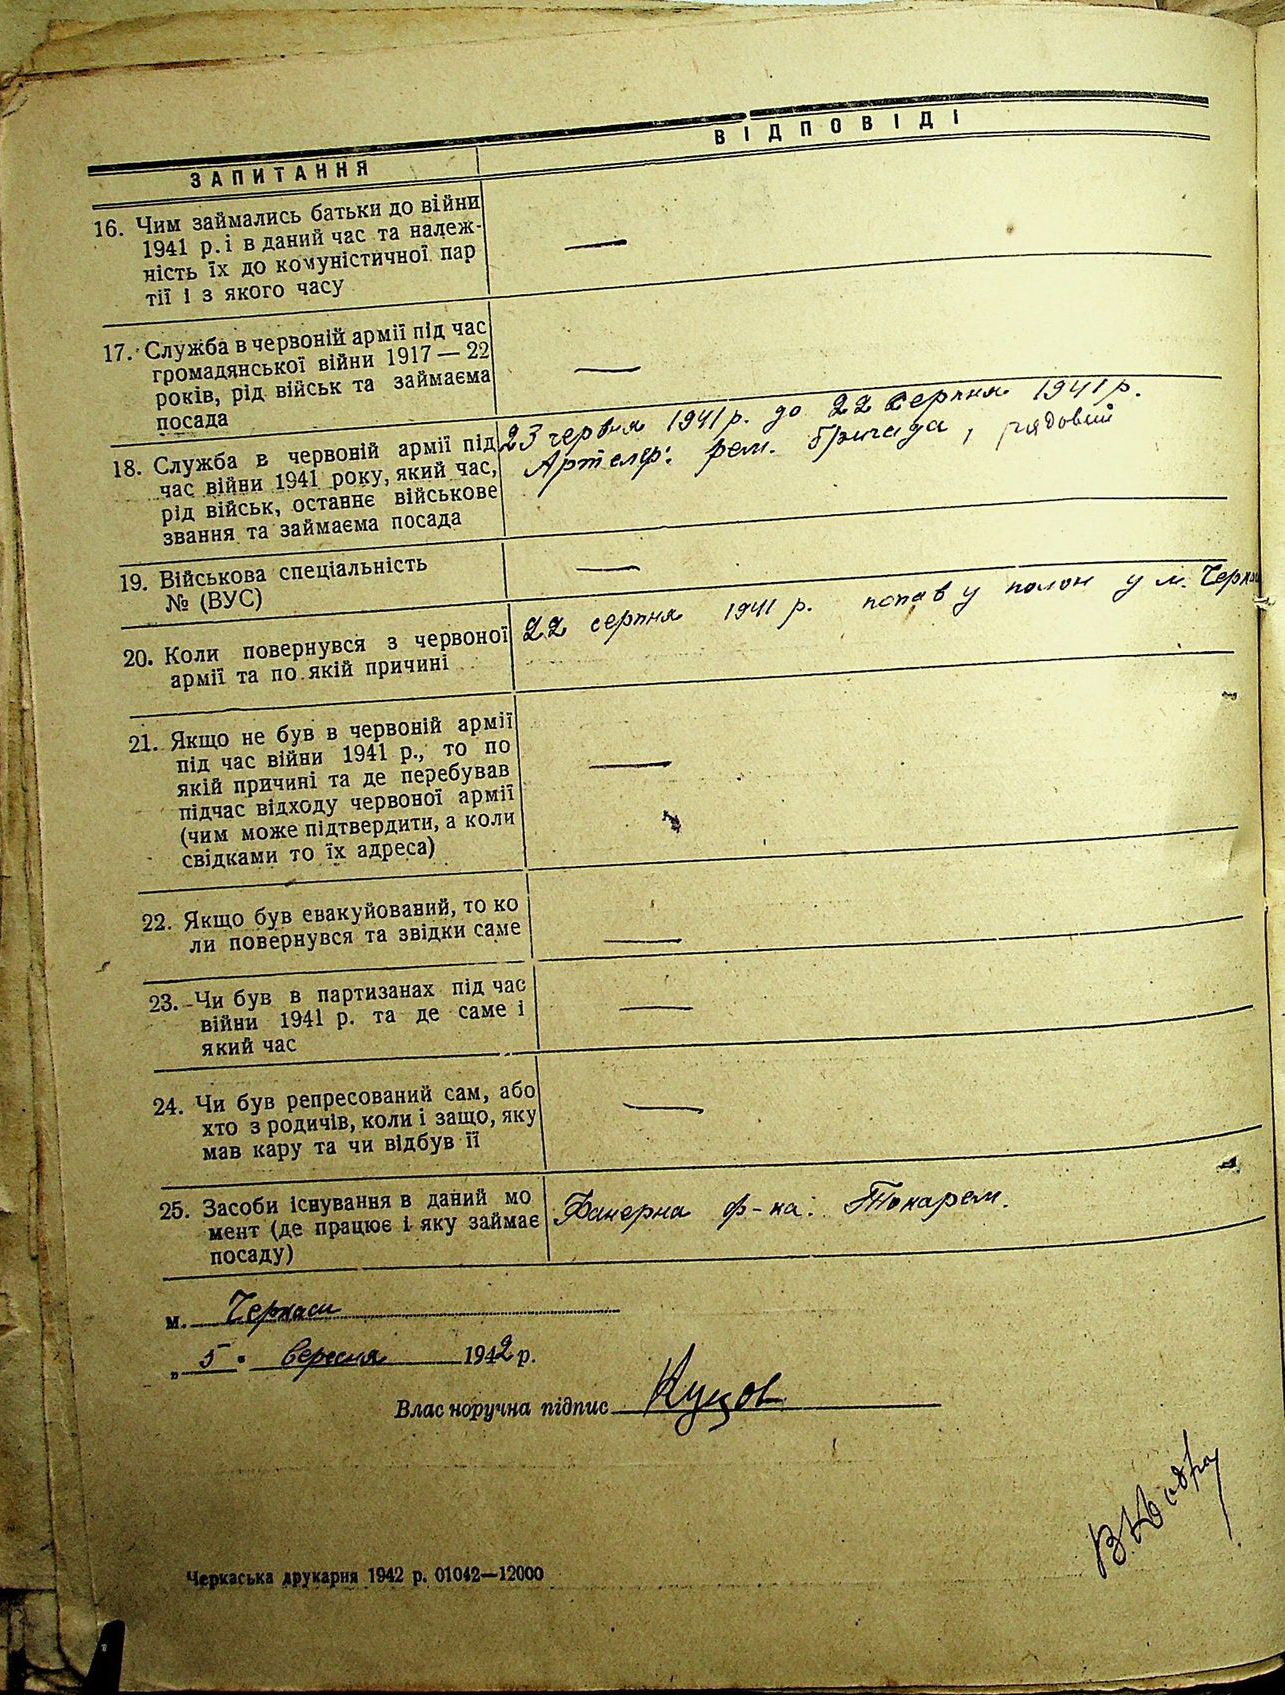 ЗАПИТАННЯ
ВІДПОВІДІ
16. Чим займались батьки до війни
1941 р. і в даний час та належ-
ність їх до комуністичної пар
тії і з якого часу
—
17. Служба в червоній армії під час
громадянської війни 1917 — 22
років, рід військ та займаєма
посада
—
18. Служба в червоній армії під
час війни 1941 року, який час,
рід військ, останнє військове
звання та займаєма посада
23 червня 1941 р. до 22 серпня 1941 р.
Артелер: рем. бригада, рядовий
19. Військова спеціальність
№ (ВУС)
—
20. Коли повернувся з червоної
армії та по якій причині
22 серпня 1941 р. попав у полон у м. Черкаси
21. Якщо не був в червоній армії
під час війни 1941 р., то по
якій причині та де перебував
підчас відходу червоної армії
(чим може підтвердити, а коли
свідками то їх адреса)
—
22. Якщо був евакуйований, то ко
ли повернувся та звідки саме
—
23. Чи був в партизанах під час
війни 1941 р. та де саме і
який час
—
24. Чи був репресований сам, або
хто з родичів, коли і защо, яку
мав кару та чи відбув її
—
25. Засоби існування в даний мо
мент (де працює і яку займає
посаду)
Фанерна ф-ка: Токарем.
м. Черкаси
„ 5 " вересня 1942 р.
Влас норучна підпис Куцов
Черкаська друкарня 1942 р. 01042—12000